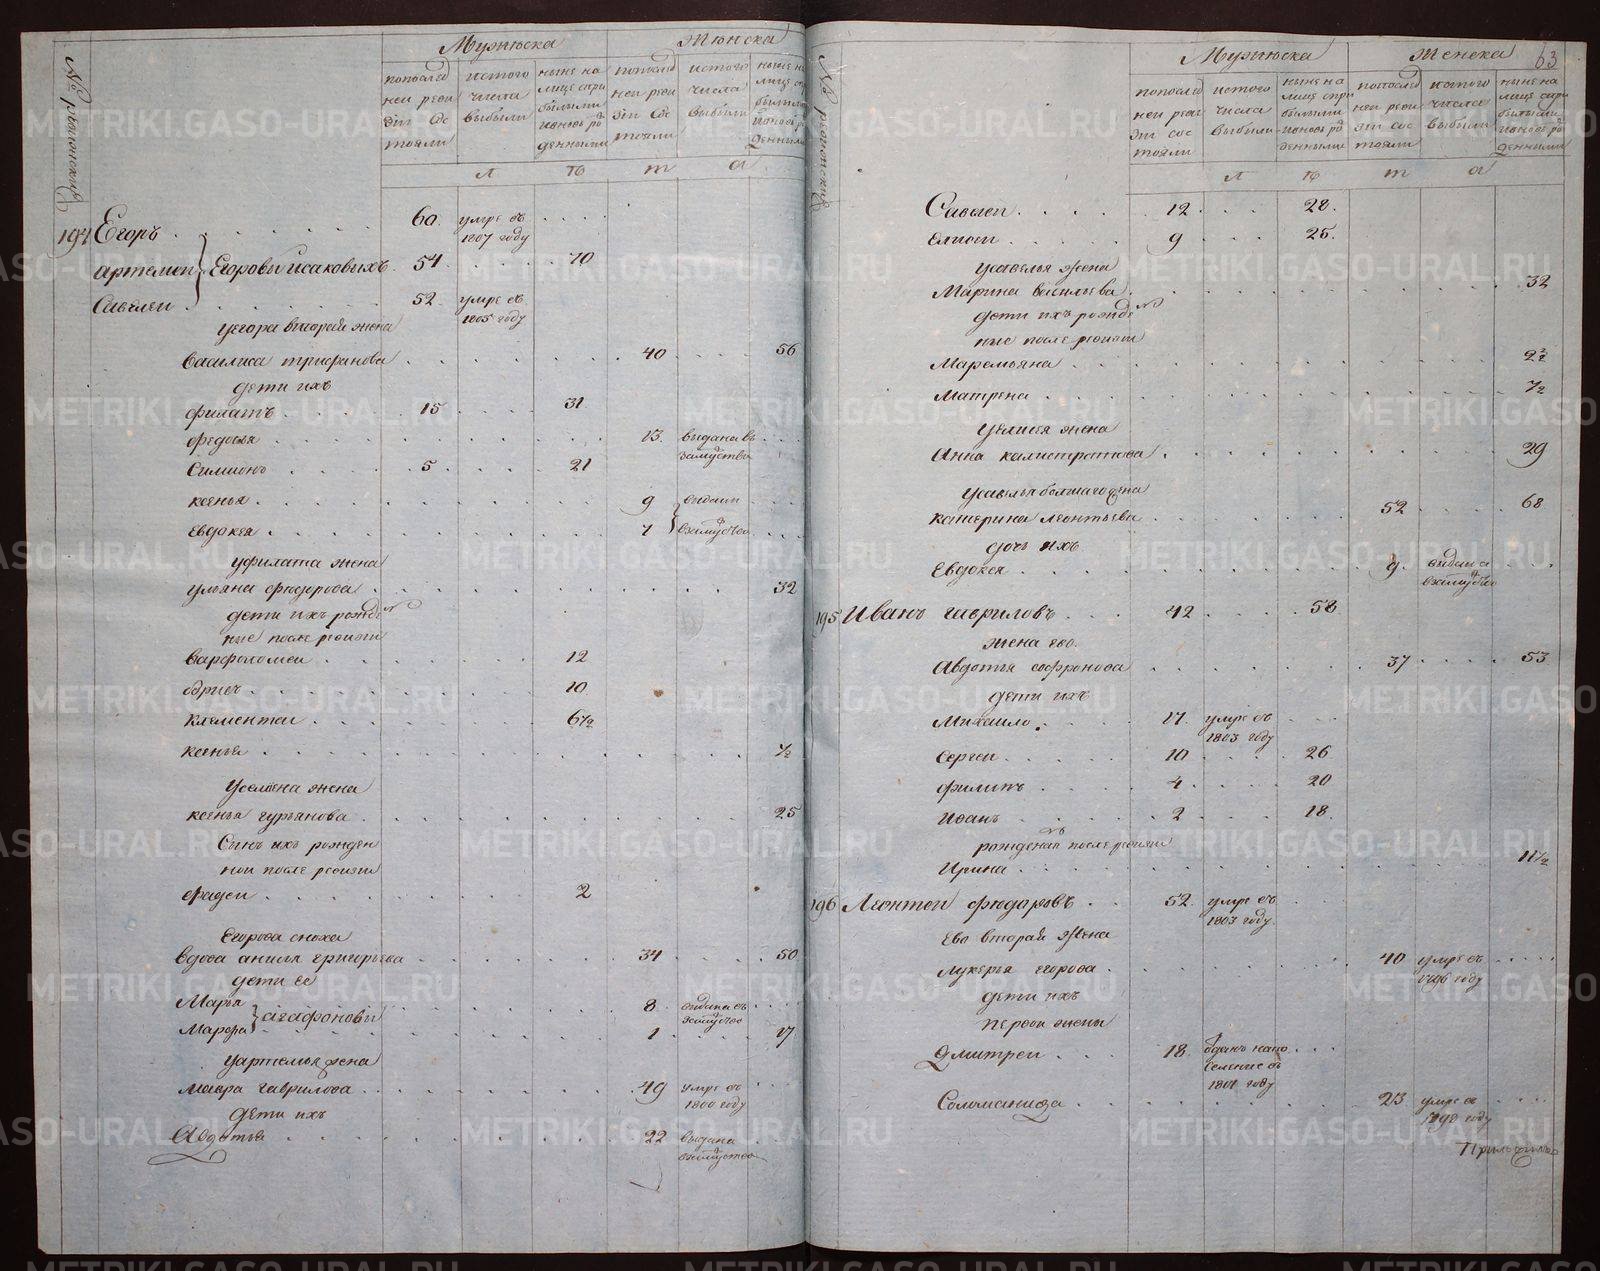 Мужеска
Женска
№ ревижский
попослед
ней реви
зіи сос
тояли
изтого
числа
выбыли
ныне на
лице спри
былыми
иновь ро
жденными
попослед
ней реви
зіи сос
тояли
изтого
числа
выбыли
л
ѣ
т
а
194 Егоръ 60 умре въ
1807 году
артемей } Егоровы исаковыхъ 54 70
Савелеи 52 умре въ
1805 году
уегора вторая жена
Василиса трифанова 40 56
дети ихъ
филатъ 15 31
федосья 13 выдана въ
замуство
Симионъ 5 21
ксенья 9
Евдокея 7
уфилата жена
ульяна фюдорова 32
дети ихъ рожде
ные после ревизіи
варфоломеи 12
10
климентеи 6½
ксенья ½
усемена жена
ксенья гурьянова 25
Сынъ ихъ рожден
нои после ревизіи
фадеи 2
Егорова сноха
вдова анисья григорьева 34 50
дети ее
Марья } агафоновы 8 выдана въ
замуство
Марфа 1 17
уартемья жена
мавра гаврилова 49 умре въ
1800 году
дети ихъ
Авдотья 22 выдана
взамуство
Мужеска
Женска
63
№ ревижский
попослед
ней реви
зіи сос
тояли
изтого
числа
выбыли
ныне на
лице спри
былыми
иновь ро
жденными
попослед
ней реви
зіи сос
тояли
изтого
числа
выбыли
ныне на
лице спри
былыми
иновь ро
жденными
л
ѣ
т
а
Савелеи 12 28
елисеи 9 25
усавелья жена
Марина васильева 32
дети ихъ рожде
ные после ревизіи
Маремьяна
Матрена
уелисея жена
Анна калистратова 29
катерина леонтьева 52 68
дочь ихъ
Евдокея 9 выдана
взамуство
195 Иванъ гавриловъ 42 58
жена ево
Авдотья софронова 37 53
дети ихъ
Михаило 17 умре въ
1803 году
Сергеи 10 26
филипъ 4 20
Иванъ 2 18
рожденая после ревизіи
Ирина 11½
196 Леонтеи фюдаровъ 52 умре въ
1803 году
Ево вторая жена
лукерья егорова 40 умре въ
1796 году
дети ихъ
первои жены
Дмитреи 18 отданъ напо
селение въ
1801 году
Соломанида 23 умре в
1798 году
METRIKI.GASO-URAL.RU